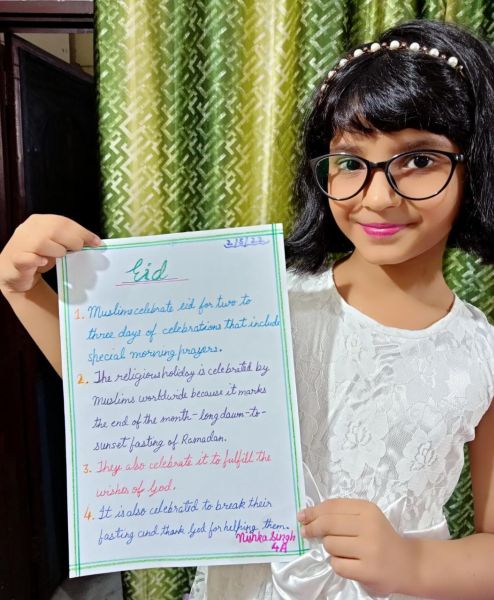 2/5/22
Eid
1. Muslims celebrate eid for two to
three days of celebrations that include
special morning prayers.
2. The religious holiday is celebrated by
Muslims worldwide because it marks
the end of the month-long dawn-to-
sunset fasting of Ramadan.
3. They also celebrate it to fulfill the
wishes of God.
4. It is also celebrated to break their
fasting and thank God for helping them.
Singh
4A